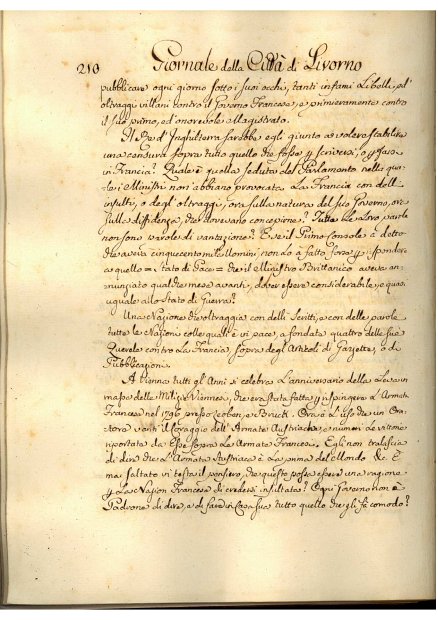 210 Giornale della Città di Livorno
pubblicare ogni giorno sotto i suoi occhi, tanti infami Libelli, ed
oltraggi villani contro il Governo Francese, e primieramente contro
il suo primo, ed onorevole Magistrato.
Il Re d'Inghilterra sarebbe egli giunto a volere stabilire
una censura sopra tutto quello che fosse scriversi, o farsi
in Francia? Quale è quella seduta del Parlamento nella qua-
le i Ministri non abbano provocata La Francia con delli
insulti, o degl'oltraggi, ora sulla natura del suo Governo, ora
sulla diffidenza, che dovevano concepirne? Tutte Le loro parole
non sono parole di vantazione? E se il Primo Console à detto
che aveva cinquecento mila Uomini, non lo à fatto forse rispondere
a quello = stato di pace = che il Ministro Brittanico aveva an-
nunziato qualche mese avanti, dover essere considerabile, e quasi
uguale allo Stato di Guerra?
Una Nazione che oltraggia con delli Scritti, e con delle parole
tutte le Nazioni colle quali è in pace, à fondata quattro delle sue
Querele contro La Francia, sopra degli Articoli di Gazzette, o di
Pubblicazioni.
A Vienna tutti gl'Anni si celebra L'anniversario della Leva in
massa delle Milizie Viennesi, che era stata fatta rispingere L'Armata
Francese nel 1796 presso Leoben, e Bruck. Ora è L'uso che un Ora-
tore vanti il Coraggio dell'Armate Austriache, e numeri Le vittorie
riportate da Esse sopra Le Armate Francesi. Egli non tralascia
di dire che L'Armata Austriaca è La prima del Mondo &c. E
mai saltato in testa il pensiero, che questo possa essere una ragione
La Nazion Francese di credersi insultata? Ogni Governo non è
Padrone di dire, e di fare in Casa sua tutto quello che gli fà comodo?